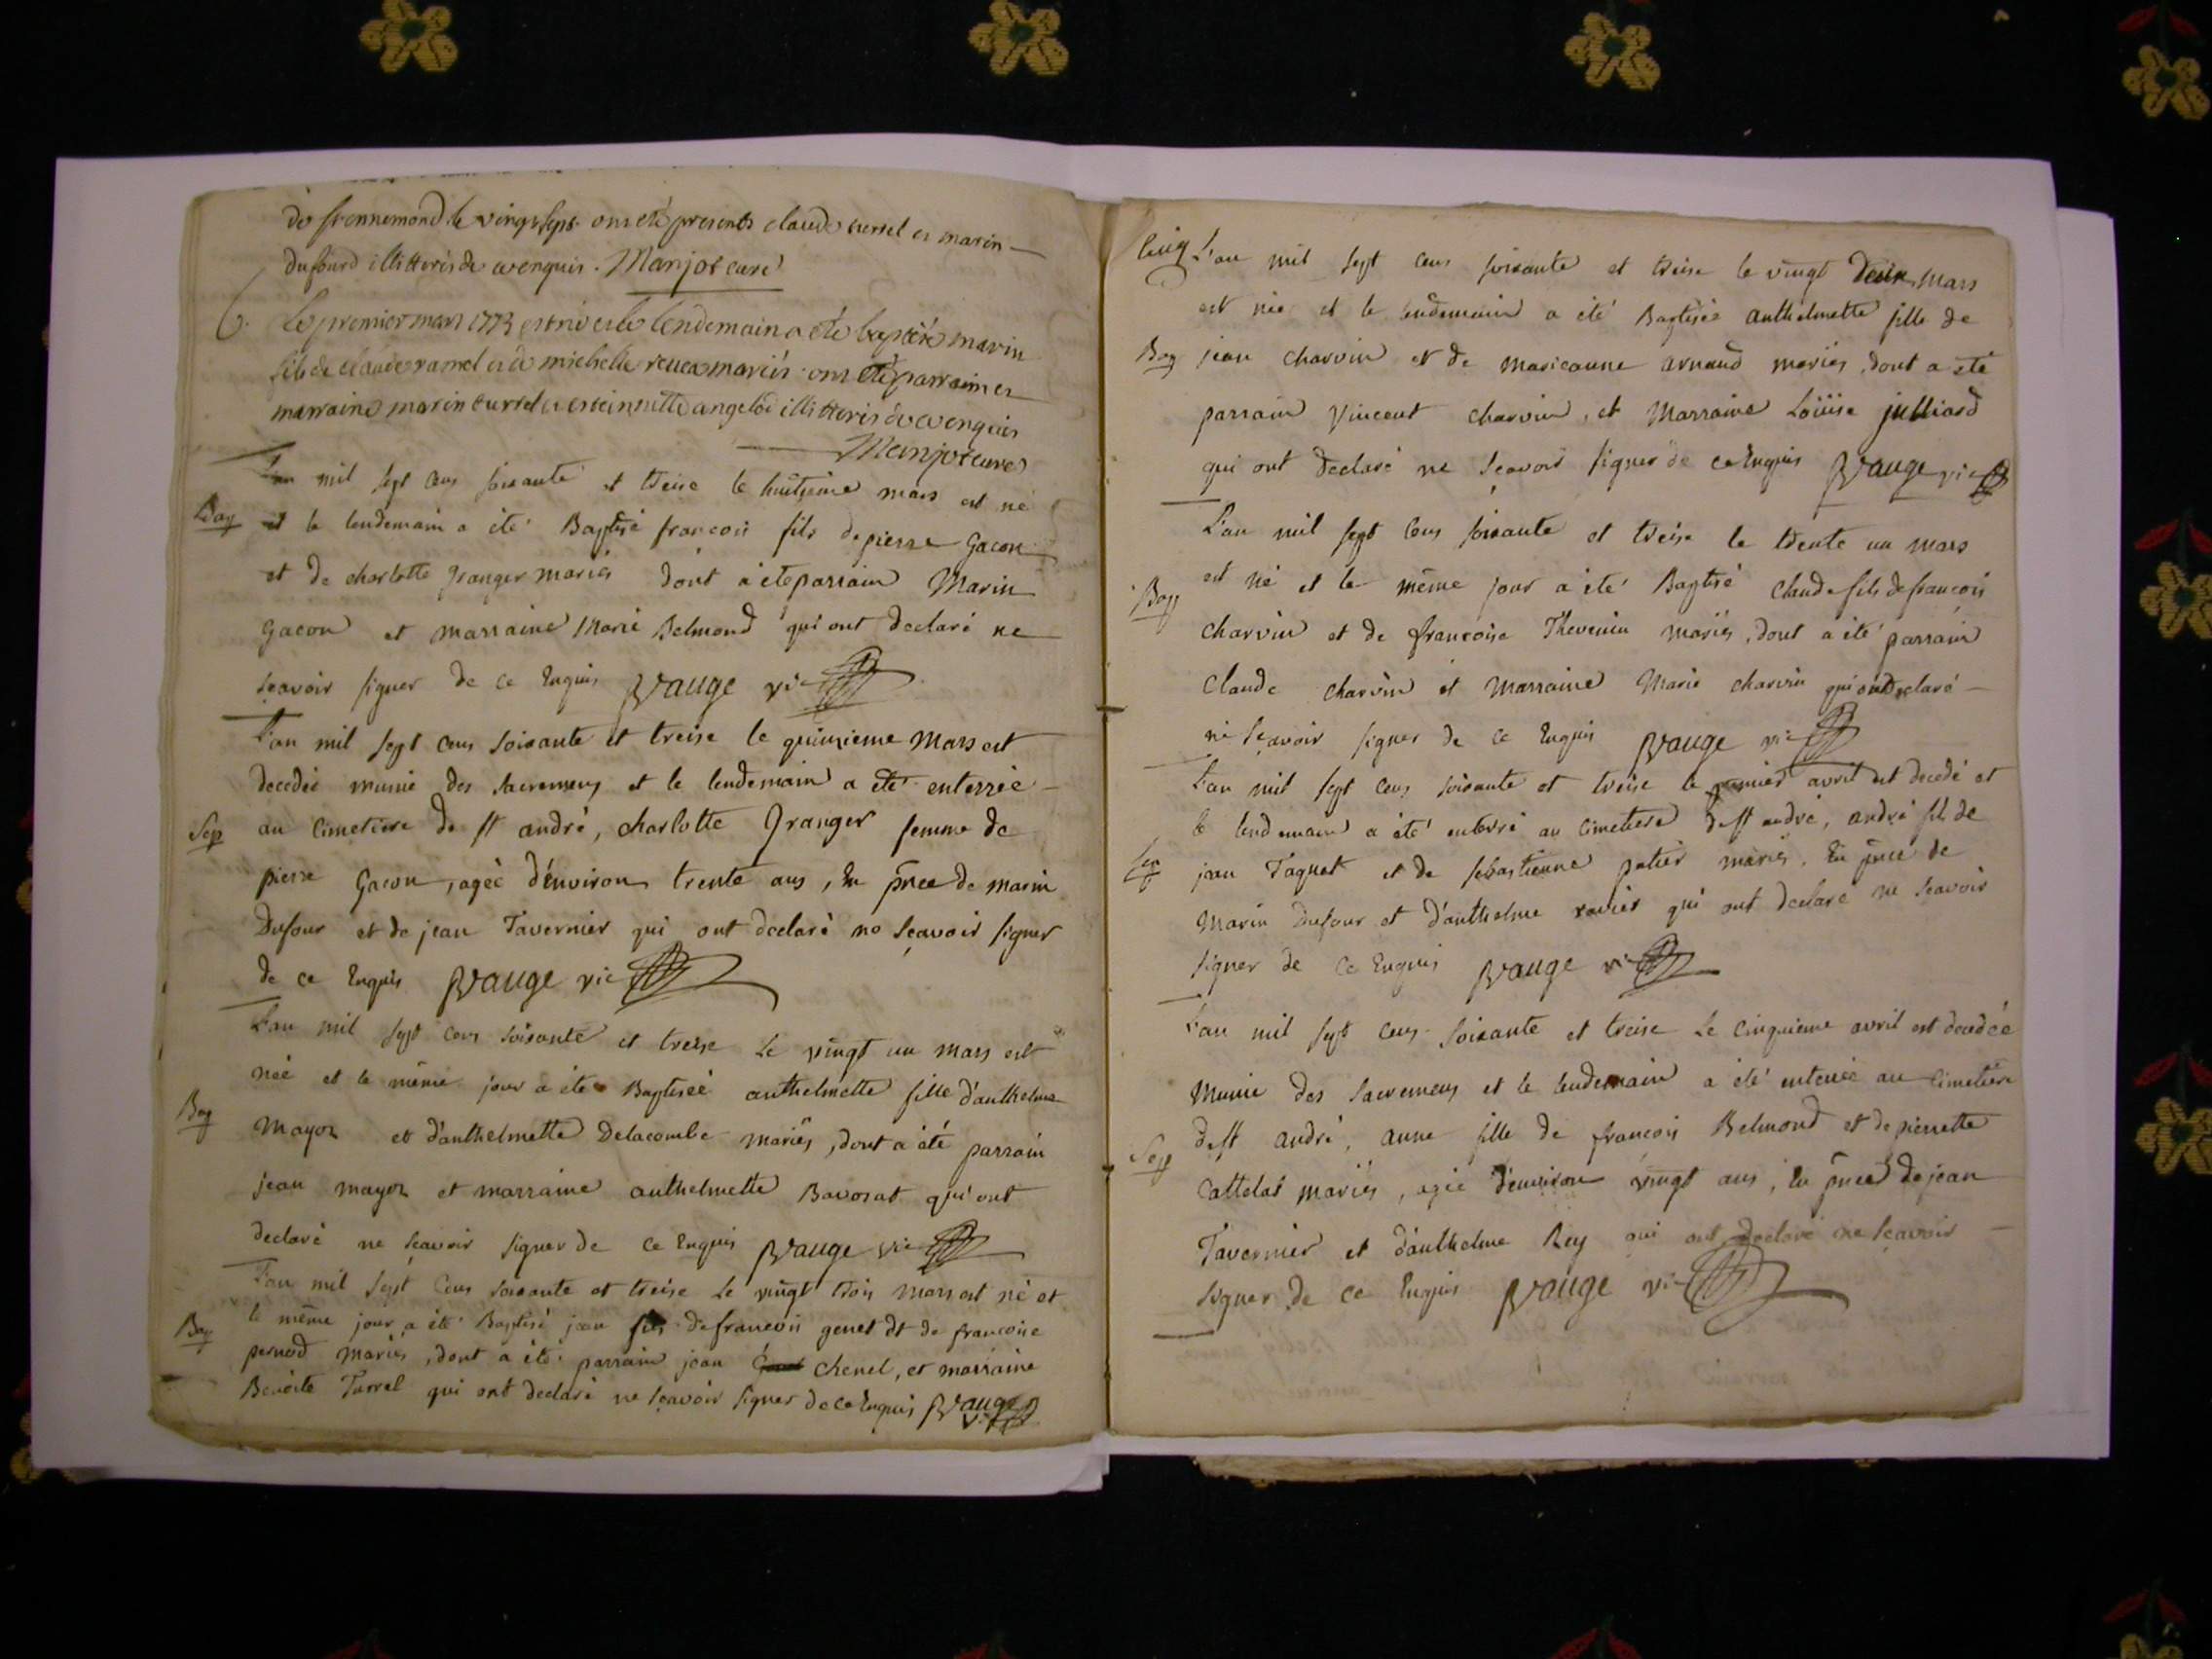 de st ennemond le vingt sept. ont eté presents claude turrel et marin
dufourd illitteris de ce enquis. Manjot curé
B. Le premier mars 1773 est né et le lendemain a eté baptisé marin
fils de claude ramel et de michelle mariés. ont eté parrain et
marraine marin turrel et estiennette angelod illitteris de ce enquis
Manjot curé
L'an mil sept cens soixante et treise le huitieme mars est né
Bap et le lendemain a été Baptisé francois fils de pierre Gacon
et de charlotte granger mariés dont a été parrain Marin
Gacon et marraine Marie Belmond qui ont declaré ne
sçavoir signer de ce Enquis Vauge vic
L'an mil sept cens soixante et treise le quinzieme Mars est
decedée munie des sacremens et le lendemain a été enterrée
Sep au cimetiere de st andré, charlotte Granger femme de
pierre Gacon, agée d'environ trente ans, En pnce de marin
Dufour et de jean Tavernier qui ont declaré ne sçavoir signer
de ce Enquis Vauge vic
L'an mil sept cens soixante et treise Le vingt un mars est
née et le même jour a été Baptiseé anthelmette fille d'anthelme
Bap Mayor et d'anthelmette Delacombe mariés, dont a été parrain
jean mayor et marraine anthelmette Bavosat qui ont
declaré ne sçavoir signer de ce Enquis Vauge vic
L'an mil sept Cens soixante et treise Le vingt trois Mars est né et
le même jour a été Baptisé jean fils de francois genet et de francoise
Bap pernod mariés, dont a été parrain jean chenel, et marraine
Benoite Turrel qui ont declaré ne sçavoir signer de ce Enquis Vauge vic
Cinq L'an mil sept cens soixante et treise le vingt deux Mars
est née et le lendemain a été Baptisée anthelmette fille de
Bap jean charvin et de marieanne arnaud mariés, dont a été
parrain Vincent charvin, et Marraine Loüise julliard
qui ont declaré ne sçavoir signer de ce Enquis Vauge vic
L'an mil sept Cens soixante et treise le trente un mars
est né et le même jour a été Baptisé claude fils de francois
Bap charvin et de francoise Thevenin mariés, dont a été parrain
claude charvin et Marraine Marie charvin qui ont declaré
ne sçavoir signer de ce Enquis Vauge vic
L'an mil sept Cens soixante et treise le premier avril est decedé et
le lendemain a été enterré au Cimetiere de st andré, andré fils de
Sep jean Taquet et de sebastienne patier mariés, En pnce de
Marin Dufour et d'anthelme ravier qui ont declaré ne sçavoir
signer de Ce Enquis Vauge vic
L'an mil sept cens soixante et treise Le Cinquieme avril est decedée
Munie des sacremens et le lendemain a été enterrée au Cimetiere
de st andré, anne fille de francois Belmond et de pierrette
Sep Cattelas mariés, agée d'environ vingt ans, En pnce de jean
Tavernier et d'anthelme Rey qui ont declaré ne sçavoir
signer de ce Enquis Vauge vic